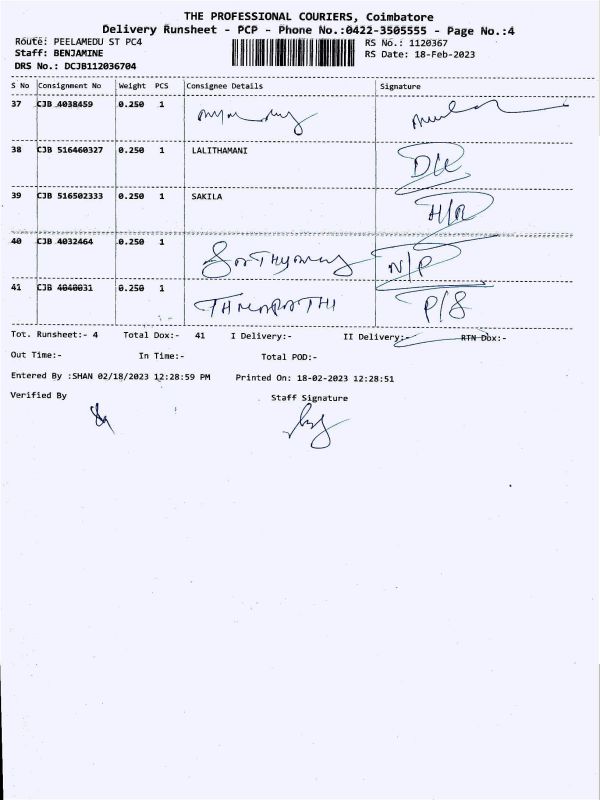 THE PROFESSIONAL COURIERS, Coimbatore
Delivery Runsheet - PCP - Phone No.:0422-3505555 - Page No.:4
Route: PEELAMEDU ST PC4
RS No.: 1120367
Staff: BENJAMINE
RS Date: 18-Feb-2023
DRS No.: DCJB112036704
S No Consignment No Weight PCS Consignee Details Signature
37 CJB 4038459 0.250 1
38 CJB 516460327 0.250 1 LALITHAMANI
39 CJB 516502333 0.250 1 SAKILA
40 CJB 4032464 0.250 1 N/P
41 CJB 4040031 0.250 1 P/S
Tot. Runsheet:- 4 Total Dox:- 41 I Delivery:- II Delivery:- RTN Dox:-
Out Time:- In Time:- Total POD:-
Entered By :SHAN 02/18/2023 12:28:59 PM Printed On: 18-02-2023 12:28:51
Verified By Staff Signature